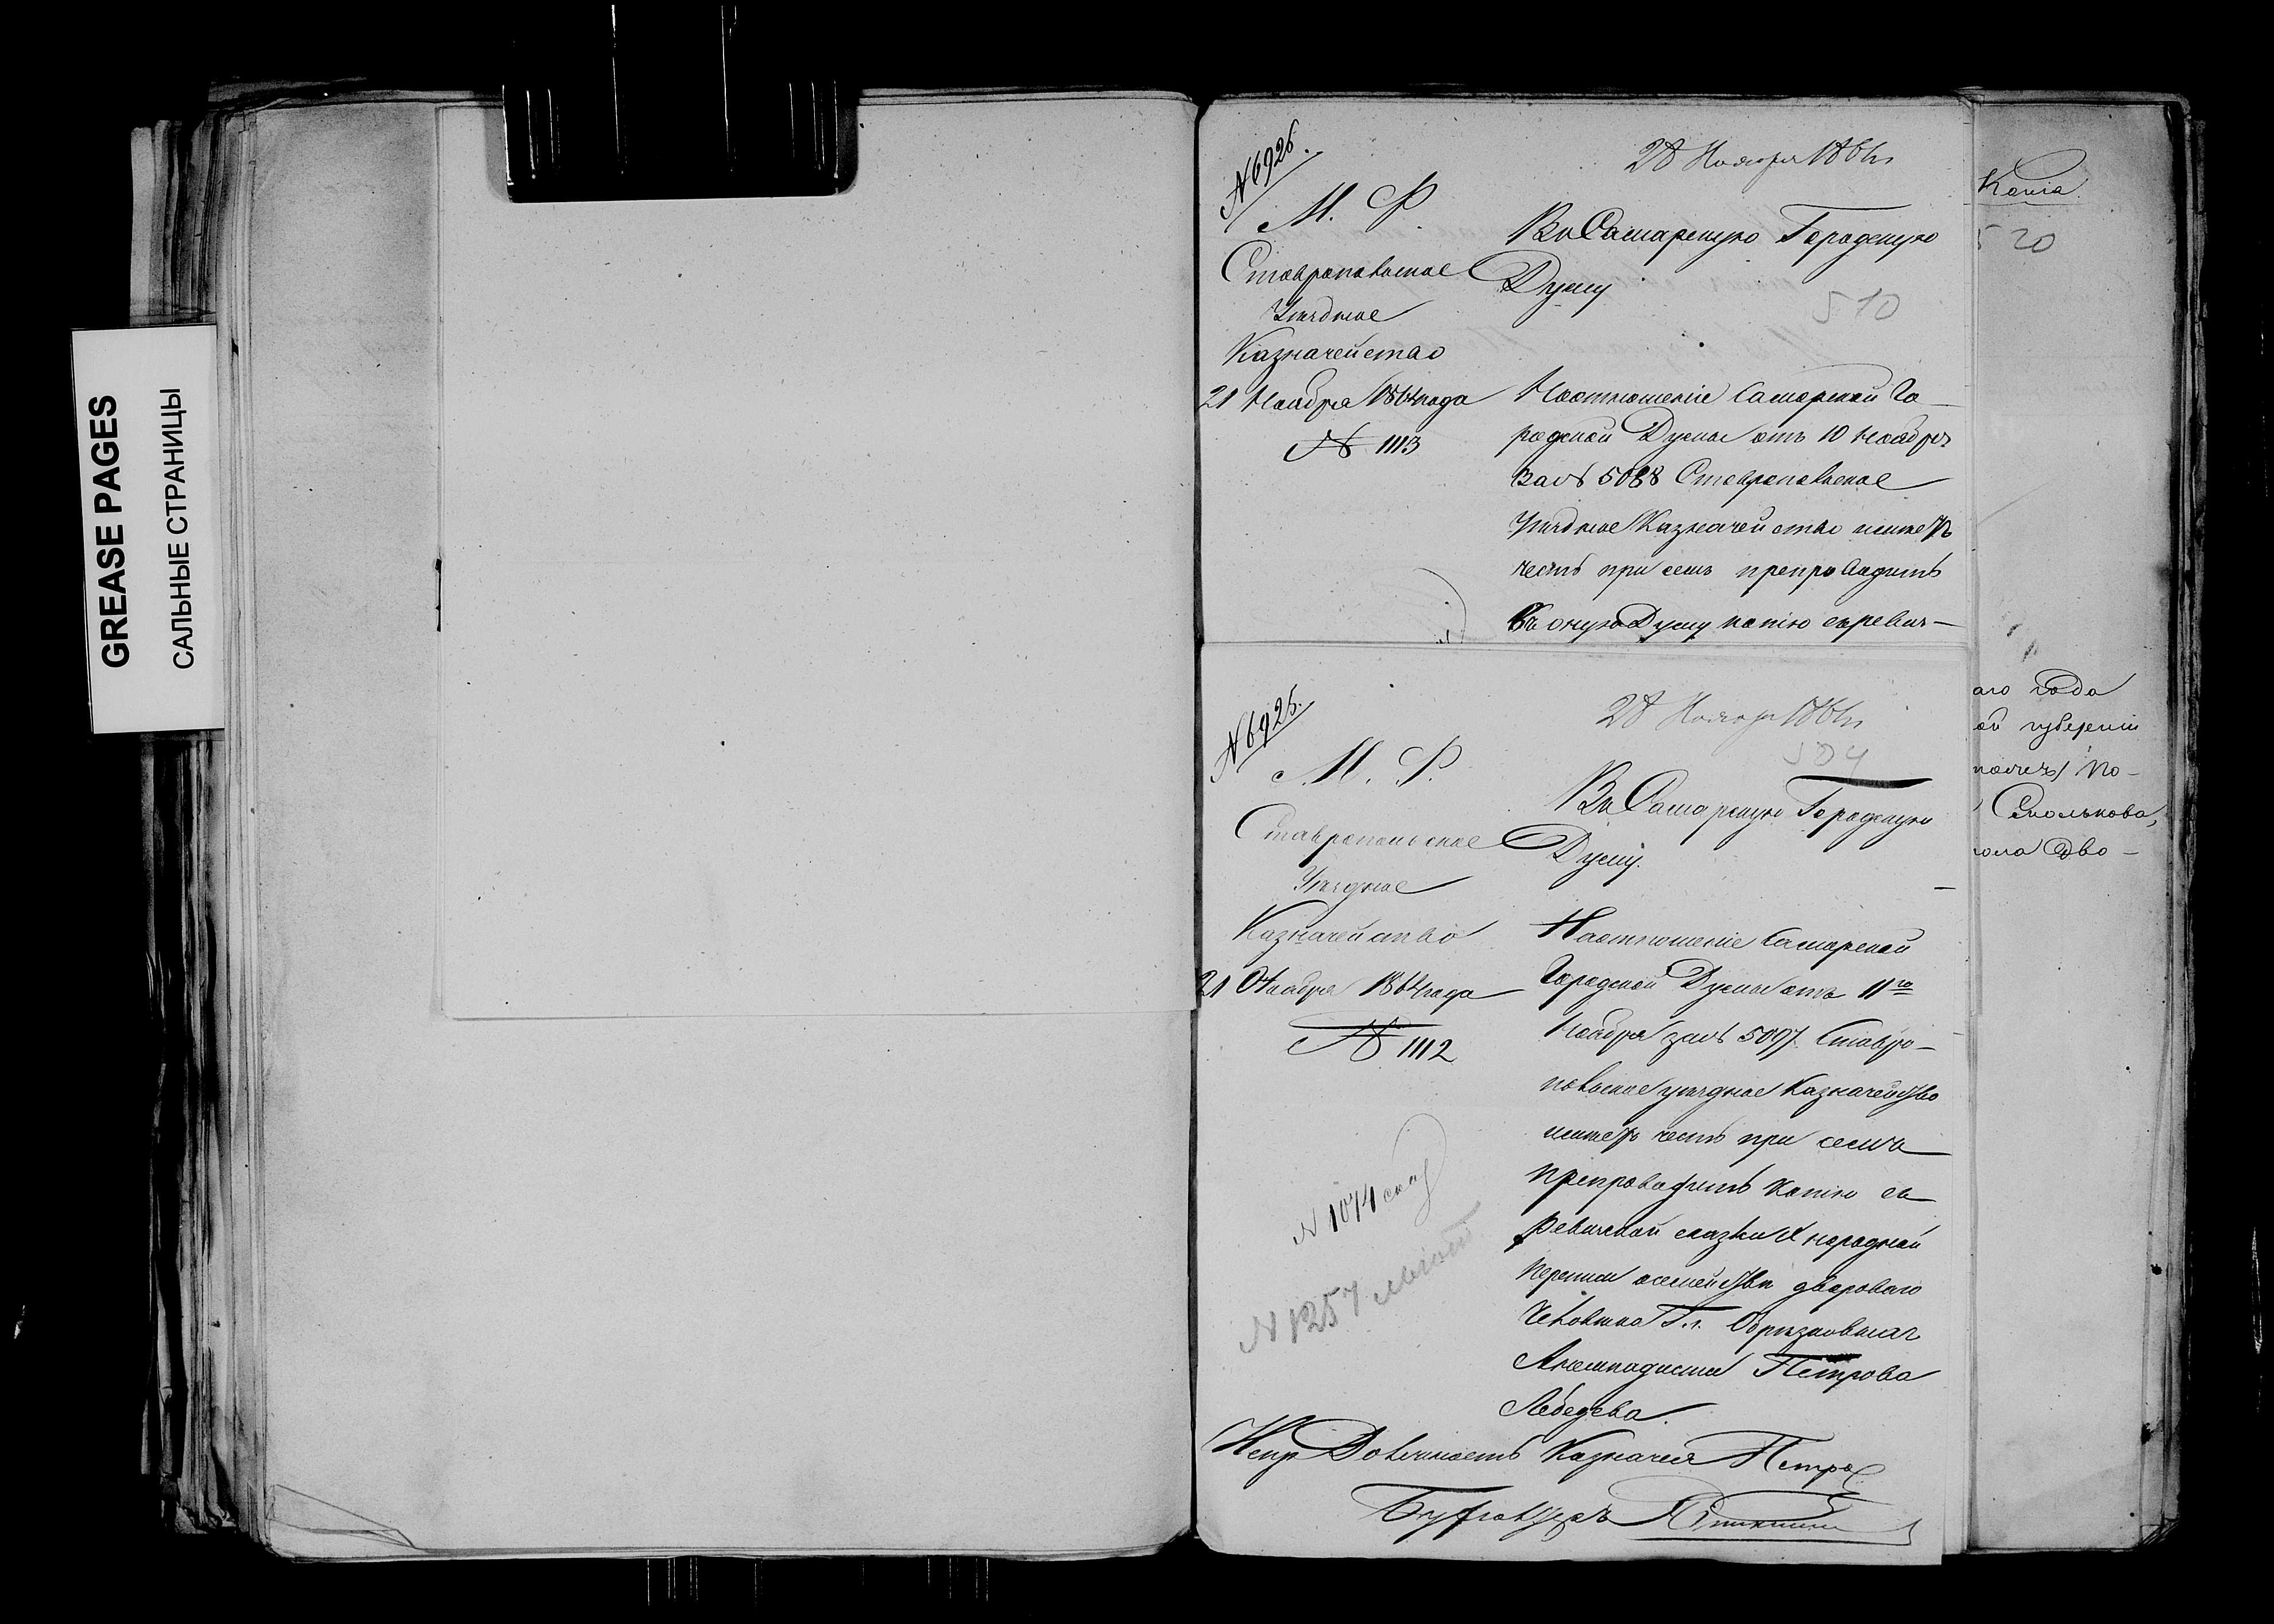 GREASE PAGES
САЛЬНЫЕ СТРАНИЦЫ
№ 6926.
28 Ноября 1864 г.
М. Ф.
Ставропольское
Уѣздное
Казначейство
21 Ноября 1864 года
№ 1113
Въ Самарскую Городскую
Думу
510
На отношеніе Самарской Го-
родской Думы отъ 10 Ноября
за № 5088 Ставропольское
Уѣздное Казначейство имѣетъ
честь при семъ препроводить
въ оную Думу копію съ ревиж-
№ 6925.
28 Ноября 1864 г.
504
М. Ф.
Ставропольское
Уѣздное
Казначейство
21 Ноября 1864 года
№ 1112
Въ Самарскую Городскую
Думу.
На отношеніе Самарской
Городской Думы отъ 11го
Ноября за № 5097. Ставро-
польское уѣздное Казначейство
имѣетъ честь при семъ
препроводить копію съ
ревижской сказки X народной
переписи о семействѣ двороваго
человѣка Г.
Петрова
Лебедева.
№ 1074
№ 1257
Должность Казначея Петров
Бухгалтеръ
Копія.
520
аго года
ой губерніи
По-
Смолькова,
дво-